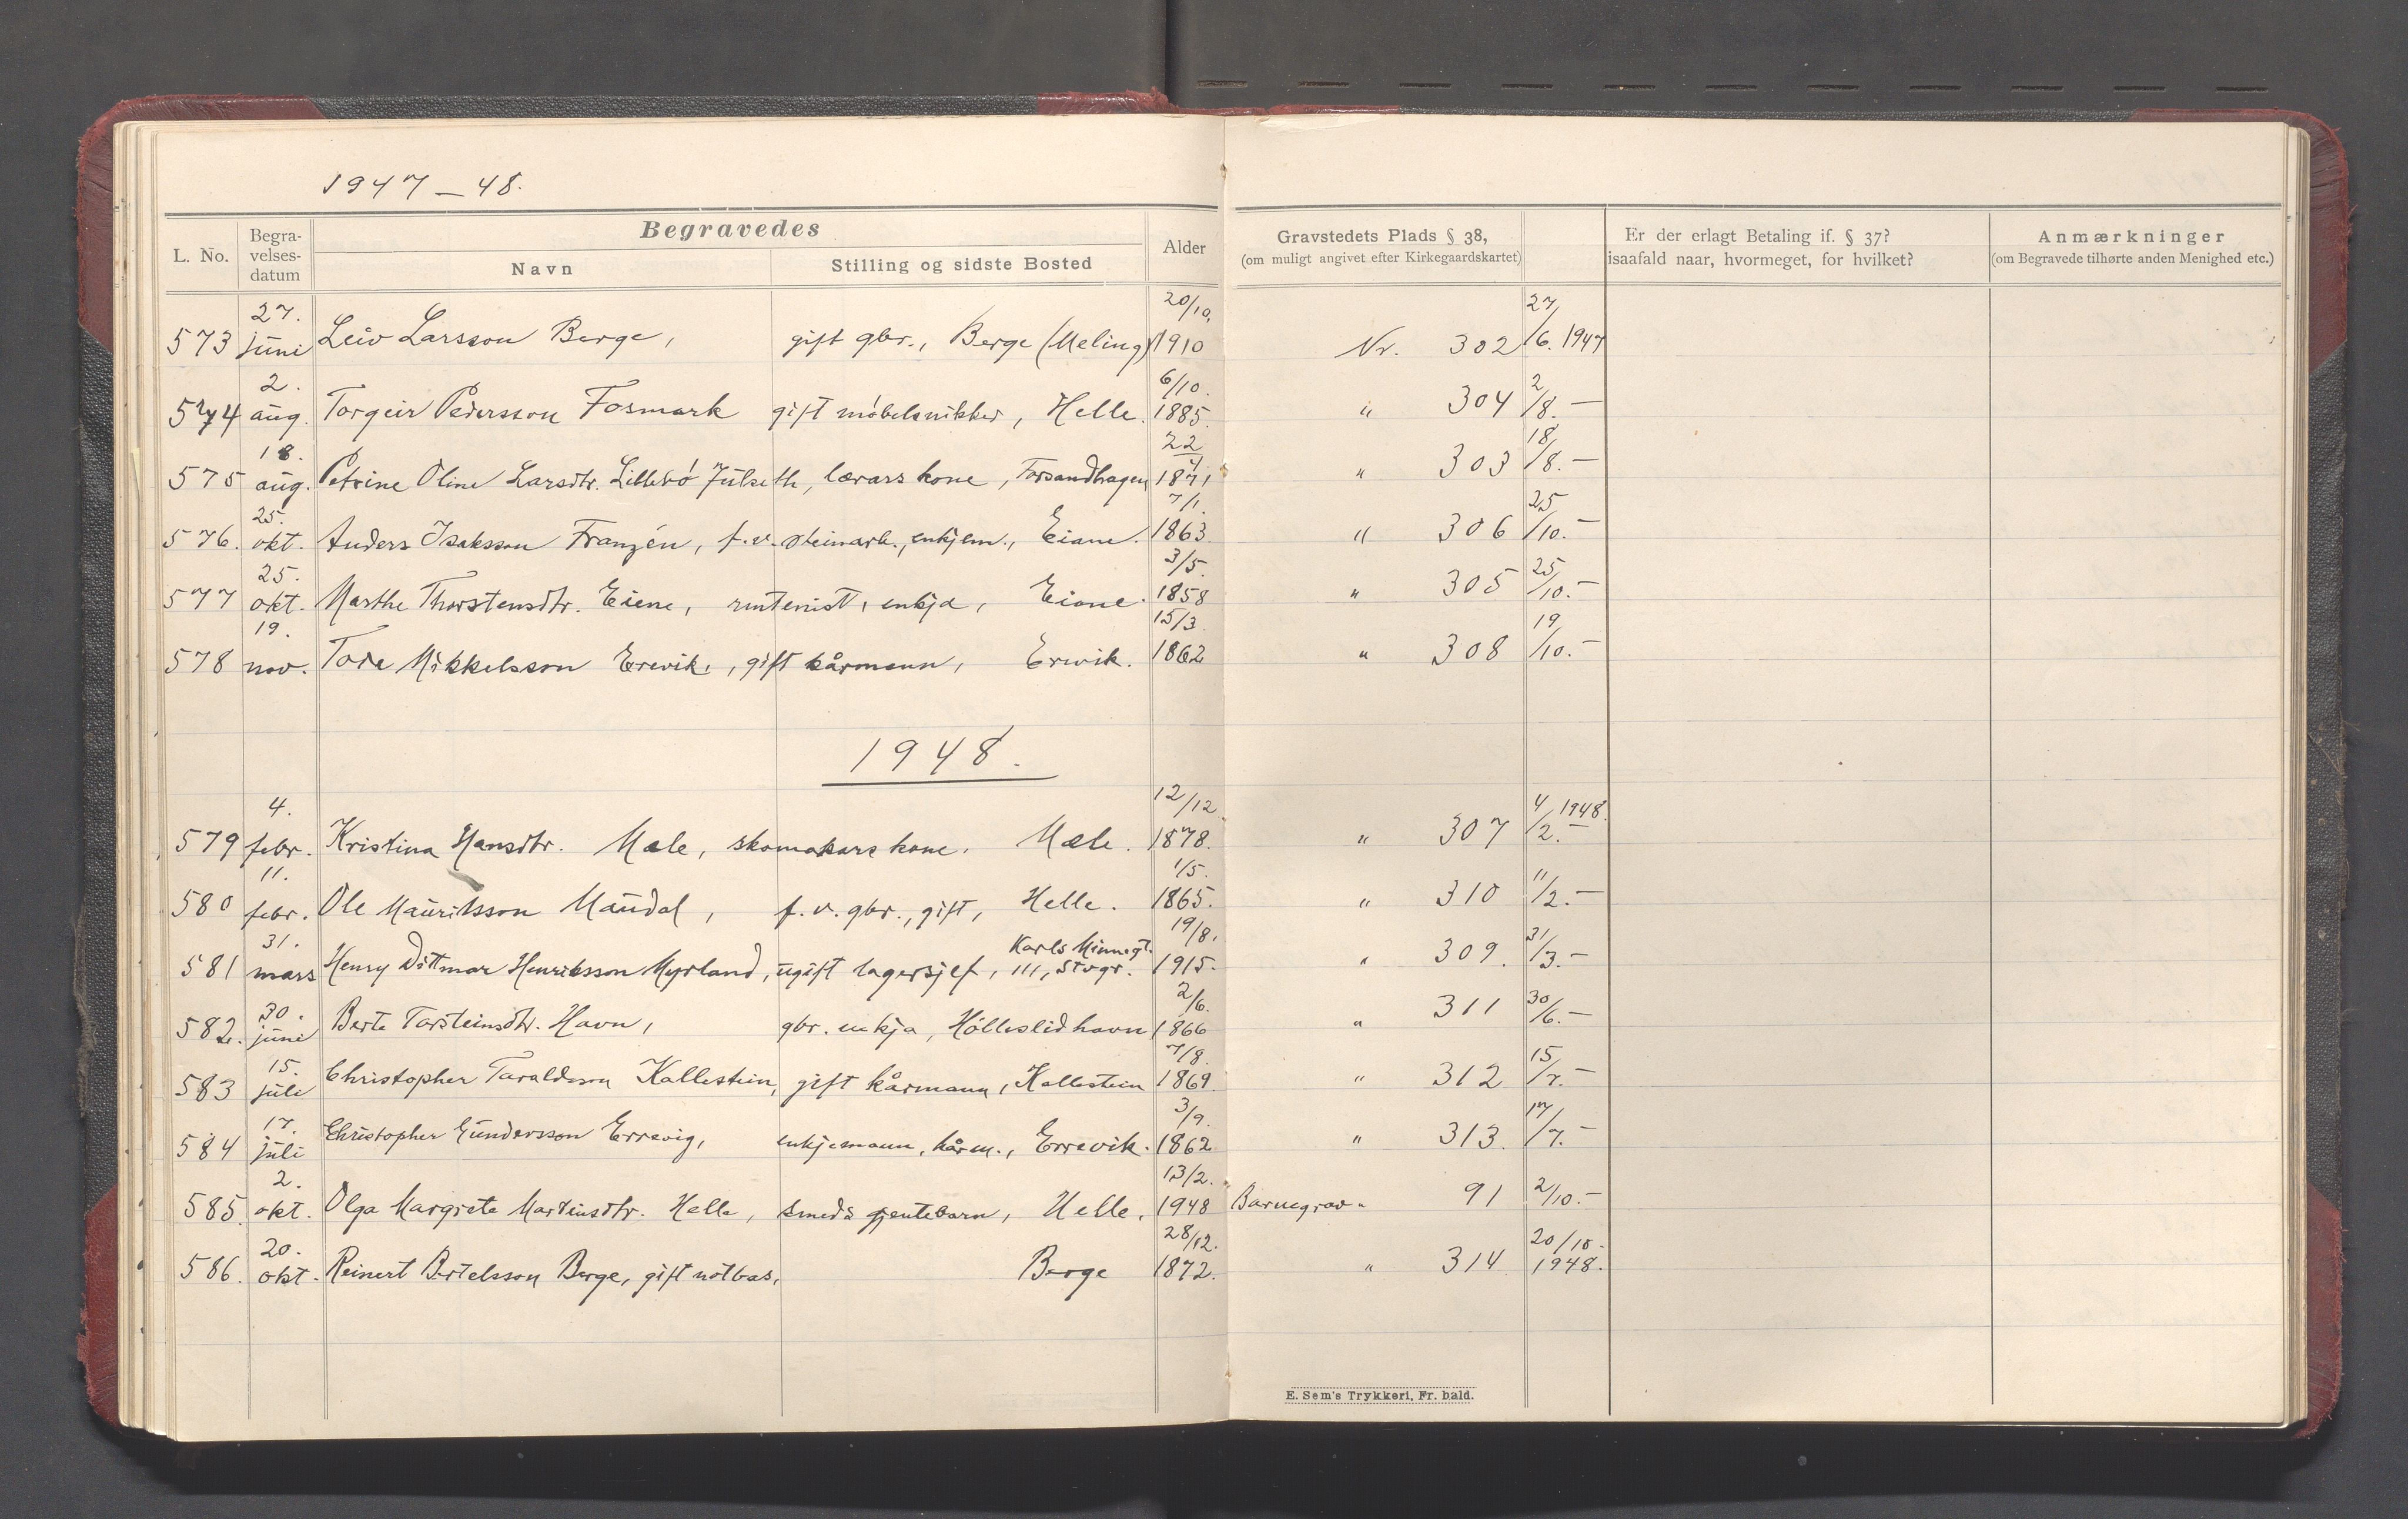 1947 – 48.
L. No.
Begra-
velses-
datum
Begravedes
Navn
Stilling og sidste Bosted
Alder
Gravstedets Plads § 38,
(om muligt angivet efter Kirkegaardskartet)
Er der erlagt Betaling if. § 37?
isaafald naar, hvormeget, for hvilket?
Anmærkninger
(om Begravede tilhørte anden Menighed etc.)
573 27. juni Leiv Larsson Berge, gift gbr., Berge (Meling) 20/10. 1910 Nr. 302 27/6. 1947
574 2. aug. Torgeir Pedersson Fosmark gift møbelsnikker, Helle. 6/10. 1885. " 304 2/8. –
575 18. aug. Petrine Oline Larsdtr. Lillebø Julseth, lærars kone, Forsandhagen 22/4 1871 " 303 18/8. –
576. 25. okt. Anders Isaksson Franzén, f.v. steinarb., enkjem., Eiane. 7/1. 1863. " 306 25/10. –
577 25. okt. Marthe Thorstensdtr. Eiene, rentenist, enkja, Eiane. 3/5. 1858 " 305 25/10. –
578 19. nov. Tore Mikkelsson Erevik, gift kårmann, Erevik. 15/3. 1862 " 308 19/10. –
1948.
579 4. febr. Kristina Hansdtr. Mæle, skomakars kone. Mæle. 12/12. 1878. " 307 4/2. 1948. –
580 11. febr. Ole Mauritsson Maudal, f.v. gbr., gift, Helle. 1/5. 1865. " 310 11/2. –
581 31. mars Henry Dittmar Henriksson Myrland, ugift lagersjef, Karls Minnegt. 111, Stvgr. 19/8. 1915. " 309. 31/3. –
582. 30. juni Berte Torsteinsdtr. Havn, gbr. enkja, Hølleslidhavn 2/6. 1866 " 311 30/6. –
583 15. juli Christopher Taraldsson Kallestein, gift kårmann, Kallestein 7/8. 1869. " 312 15/7. –
584 17. juli Christopher Gundersson Errevig, enkjemann, kårm., Errevik. 3/9. 1862 " 313. 17/7. –
585. 2. okt. Olga Margrete Martinsdtr. Helle, smeds gjentebarn, Helle. 13/2. 1948 Barnegrav " 91 2/10. –
586. 20. okt. Reinert Bertelsson Berge, gift notbas, Berge 28/12. 1872. " 314 20/10. 1948.
E. Sem's Trykkeri, Fr. hald.